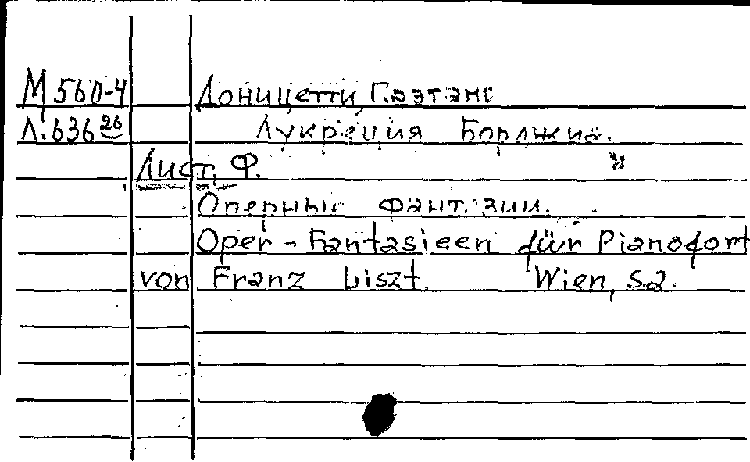 М 560-4 Доницетти, Гаэтано
Л.636 26 Лукреция Борджиа.
Лист, Ф.
Оперные фантазии.
Oper - Fantasieen für Pianofort
von Franz Liszt. Wien, s.a.